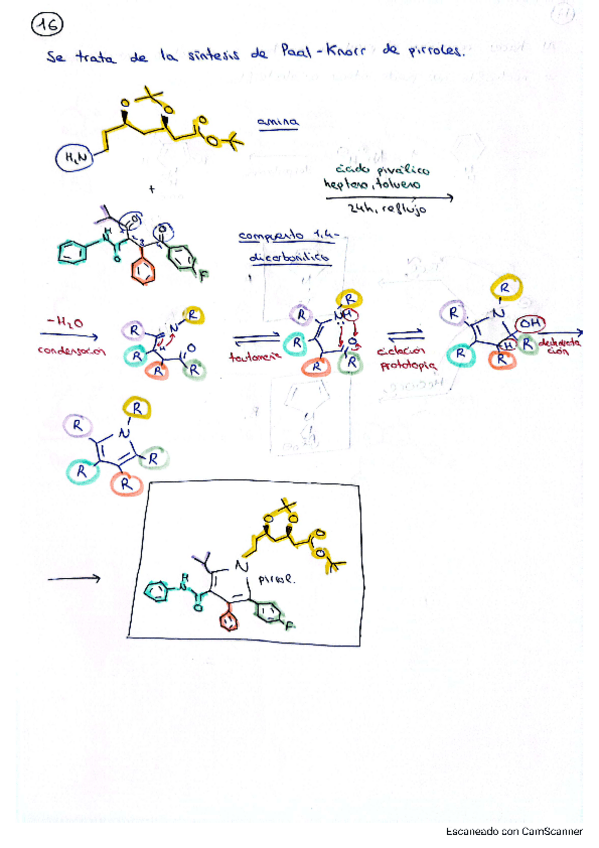 16
Se trata de la síntesis de Paal-Knorr de pirroles.
amina
H2N
O
O
O
O
+
ácido piválico
heptano, tolueno
24h, reflujo
compuesto 1,4-
dicarbonílico
H
N
O
O
O
F
-H2O
condensación
tautomería
ciclación
prototopía
deshidrata
ción
R
N
R
R
R
O
R
R
NH
R
R
R
O
R
R
N
R
R
R
OH
H
R
R
N
R
R
R
R
pirrol.
N
H
N
O
F
O
O
O
O
Escaneado con CamScanner